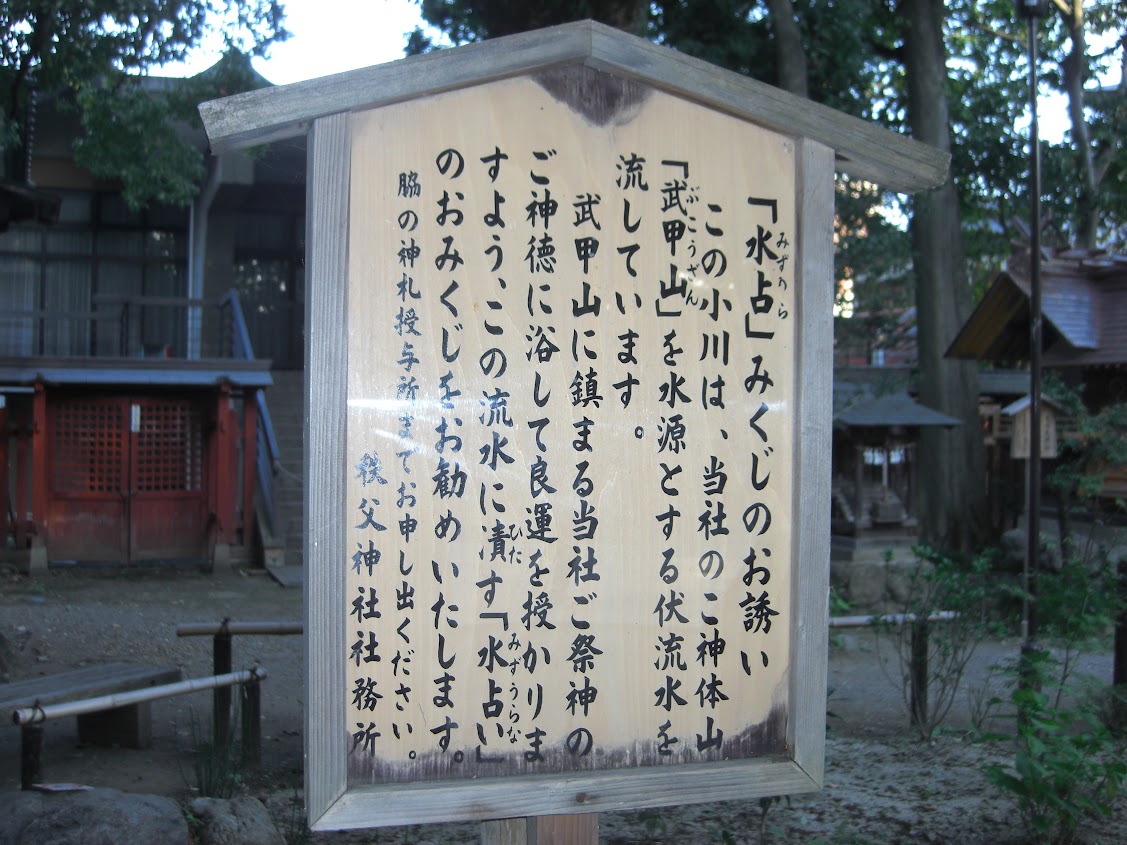 「水占」みくじのお誘い
この小川は、当社のご神体山
「武甲山」を水源とする伏流水を
流しています。
武甲山に鎮まる当社ご祭神の
ご神徳に浴して良運を授かりま
すよう、この流水に漬す「水占い」
のおみくじをお勧めいたします。
脇の神札授与所までお申し出ください。
秩父神社社務所